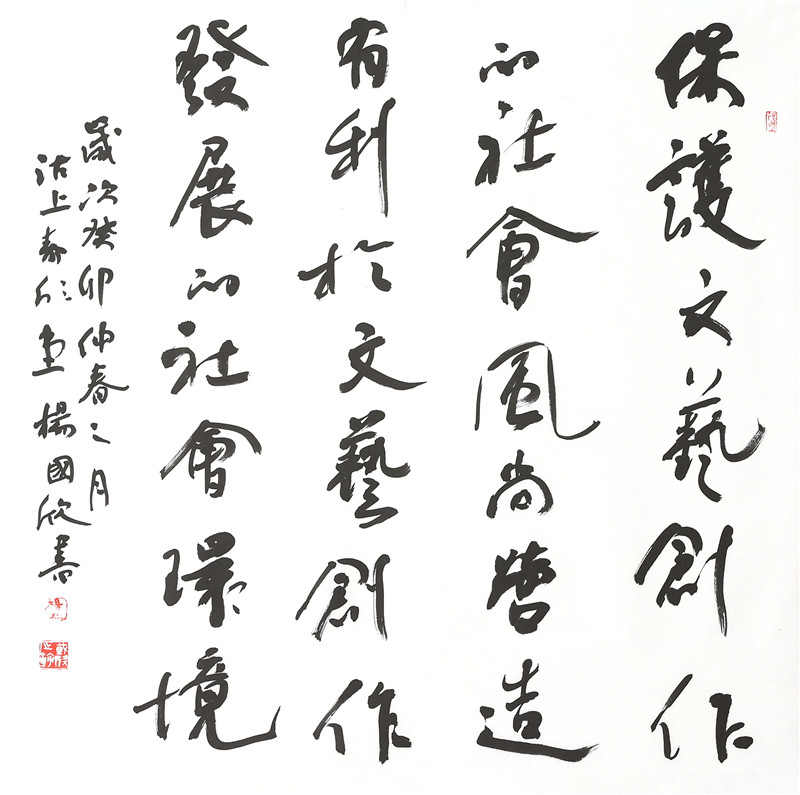 保護文藝創作
的社會風尚營造
有利於文藝創作
發展的社會環境
歲次癸卯仲春之月
沽上春欣堂楊國欣書